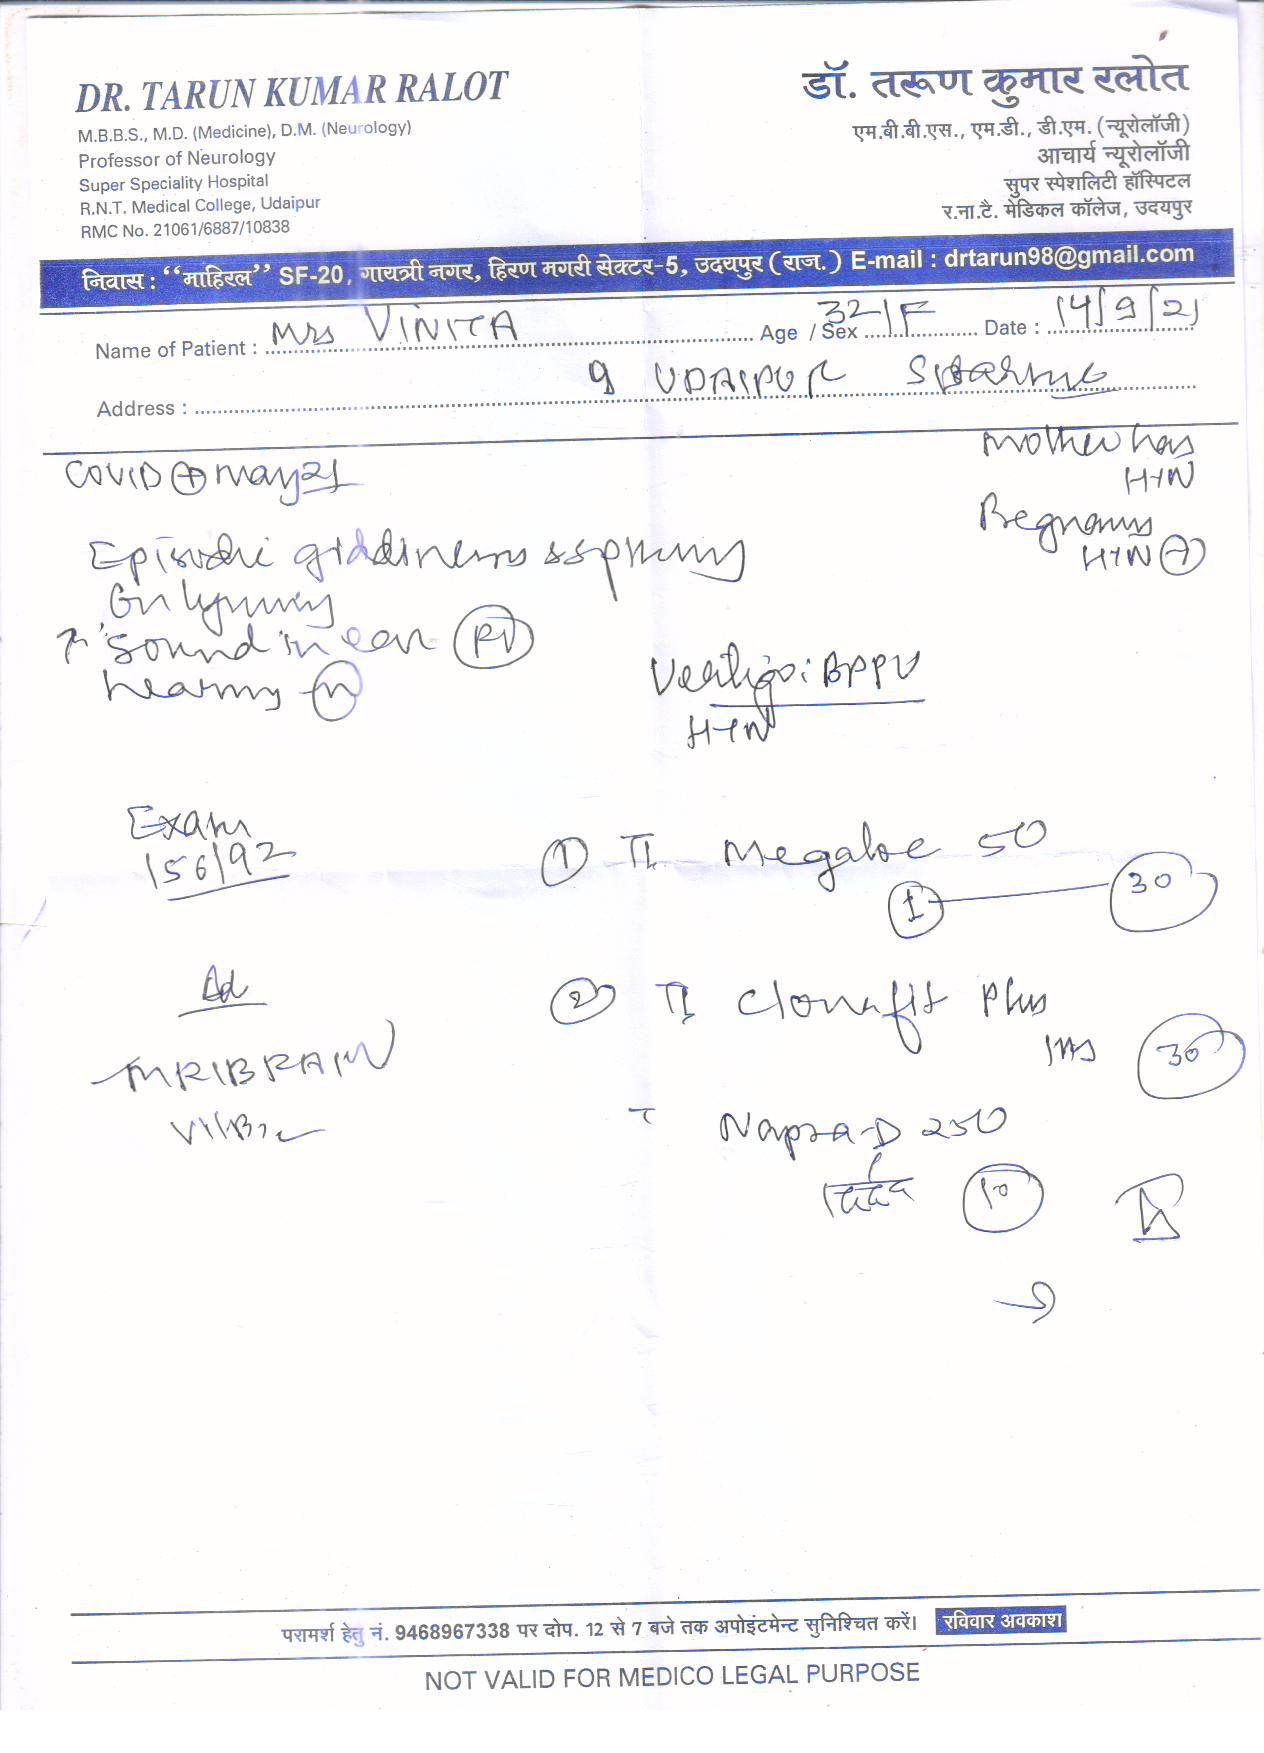 DR. TARUN KUMAR RALOT
M.B.B.S., M.D. (Medicine), D.M. (Neurology)
Professor of Neurology
Super Speciality Hospital
R.N.T. Medical College, Udaipur
RMC No. 21061/6887/10838
डॉ. तरूण कुमार रलोत
एम.बी.बी.एस., एम.डी., डी.एम. (न्यूरोलॉजी)
आचार्य न्यूरोलॉजी
सुपर स्पेशलिटी हॉस्पिटल
र.ना.टै. मेडिकल कॉलेज, उदयपुर
निवास : “माहिरल” SF-20, गायत्री नगर, हिरण मगरी सेक्टर-5, उदयपुर (राज.) E-mail : drtarun98@gmail.com
Name of Patient : Mrs VINITA Age / Sex 32/F Date : 14/9/21
Address : UDAIPUR
COVID + may 21
mother has
HTN
HTN +
Episodic giddiness
Sound in ear
hearing n
Vertigo: BPPV
HTN
Exam
156/92
① 50
1 30
Ad
② Clonafit Plus
30
MRI BRAIN
Napra-D 250
10
परामर्श हेतु नं. 9468967338 पर दोप. 12 से 7 बजे तक अपोइंटमेन्ट सुनिश्चित करें। रविवार अवकाश
NOT VALID FOR MEDICO LEGAL PURPOSE